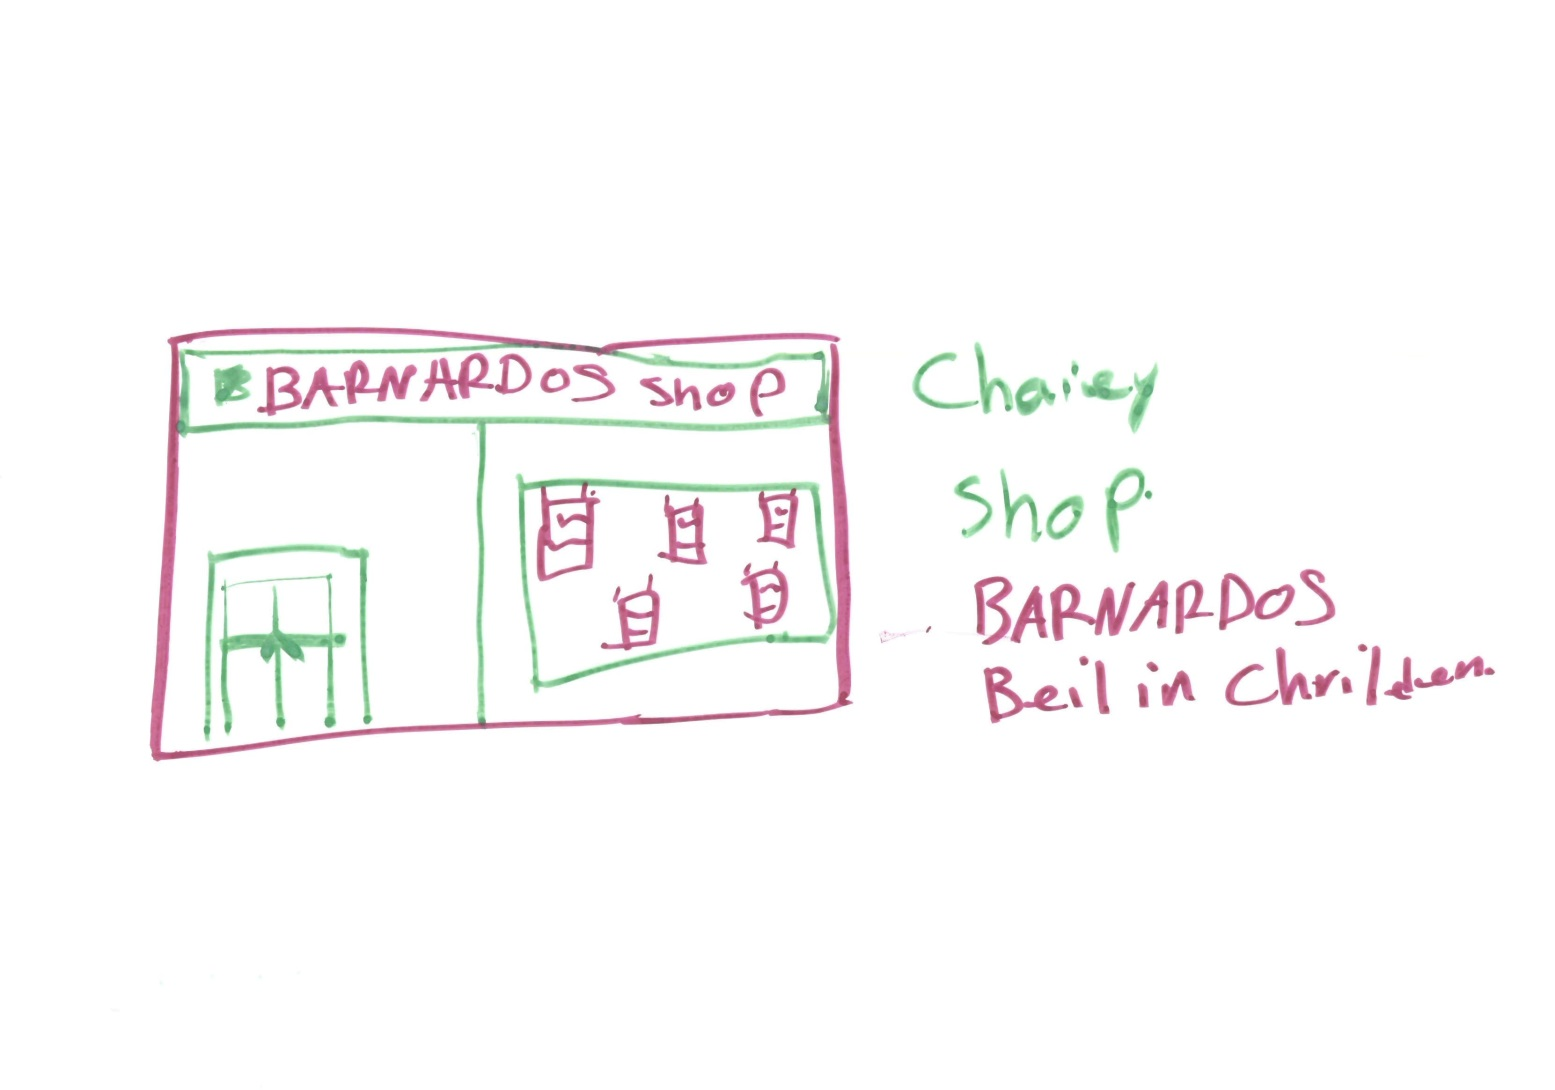 BARNARDOS shop
Chairey
shop.
BARNARDOS
Beil in Chrildren.